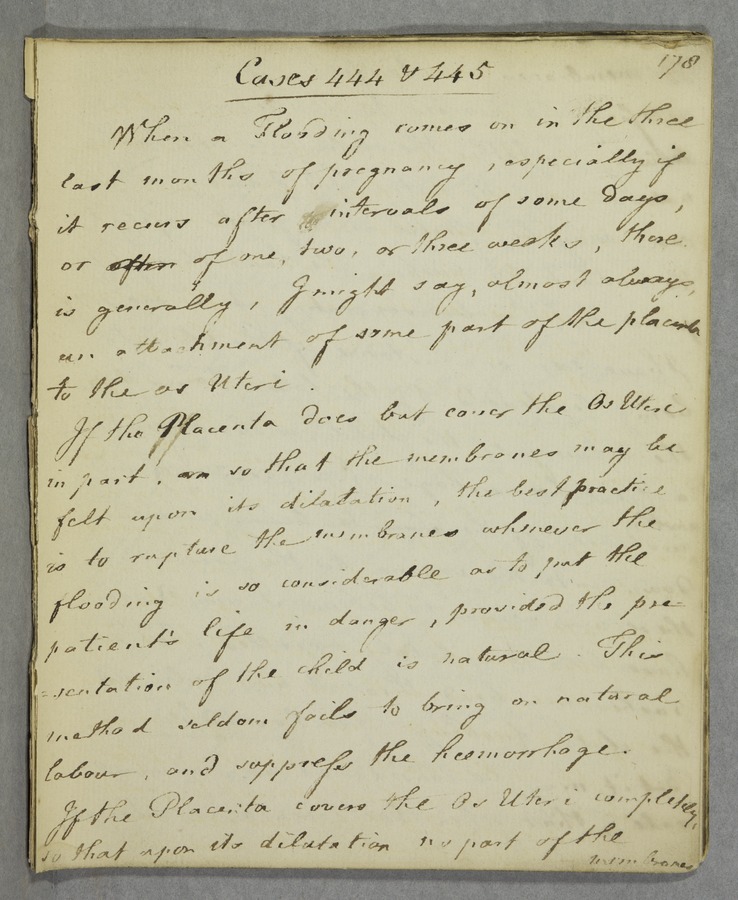 178
Cases 444 & 445
When a Flooding comes on in the three
last months of pregnancy, especially if
it recurs after intervals of some days,
or often of one, two, or three weeks, there
is generally, I might say, almost always,
an attachment of some part of the placenta
to the os Uteri.
If the Placenta does but cover the Os Uteri
in part, so that the membranes may be
felt upon its dilatation, the best practice
is to rupture the membranes whenever the
flooding is so considerable as to put the
patient's life in danger, provided the pre-
=sentation of the child is natural. This
method seldom fails to bring on natural
labour, and suppress the hemorrhage.
If the Placenta covers the Os Uteri completely,
so that upon its dilatation no part of the
membranes